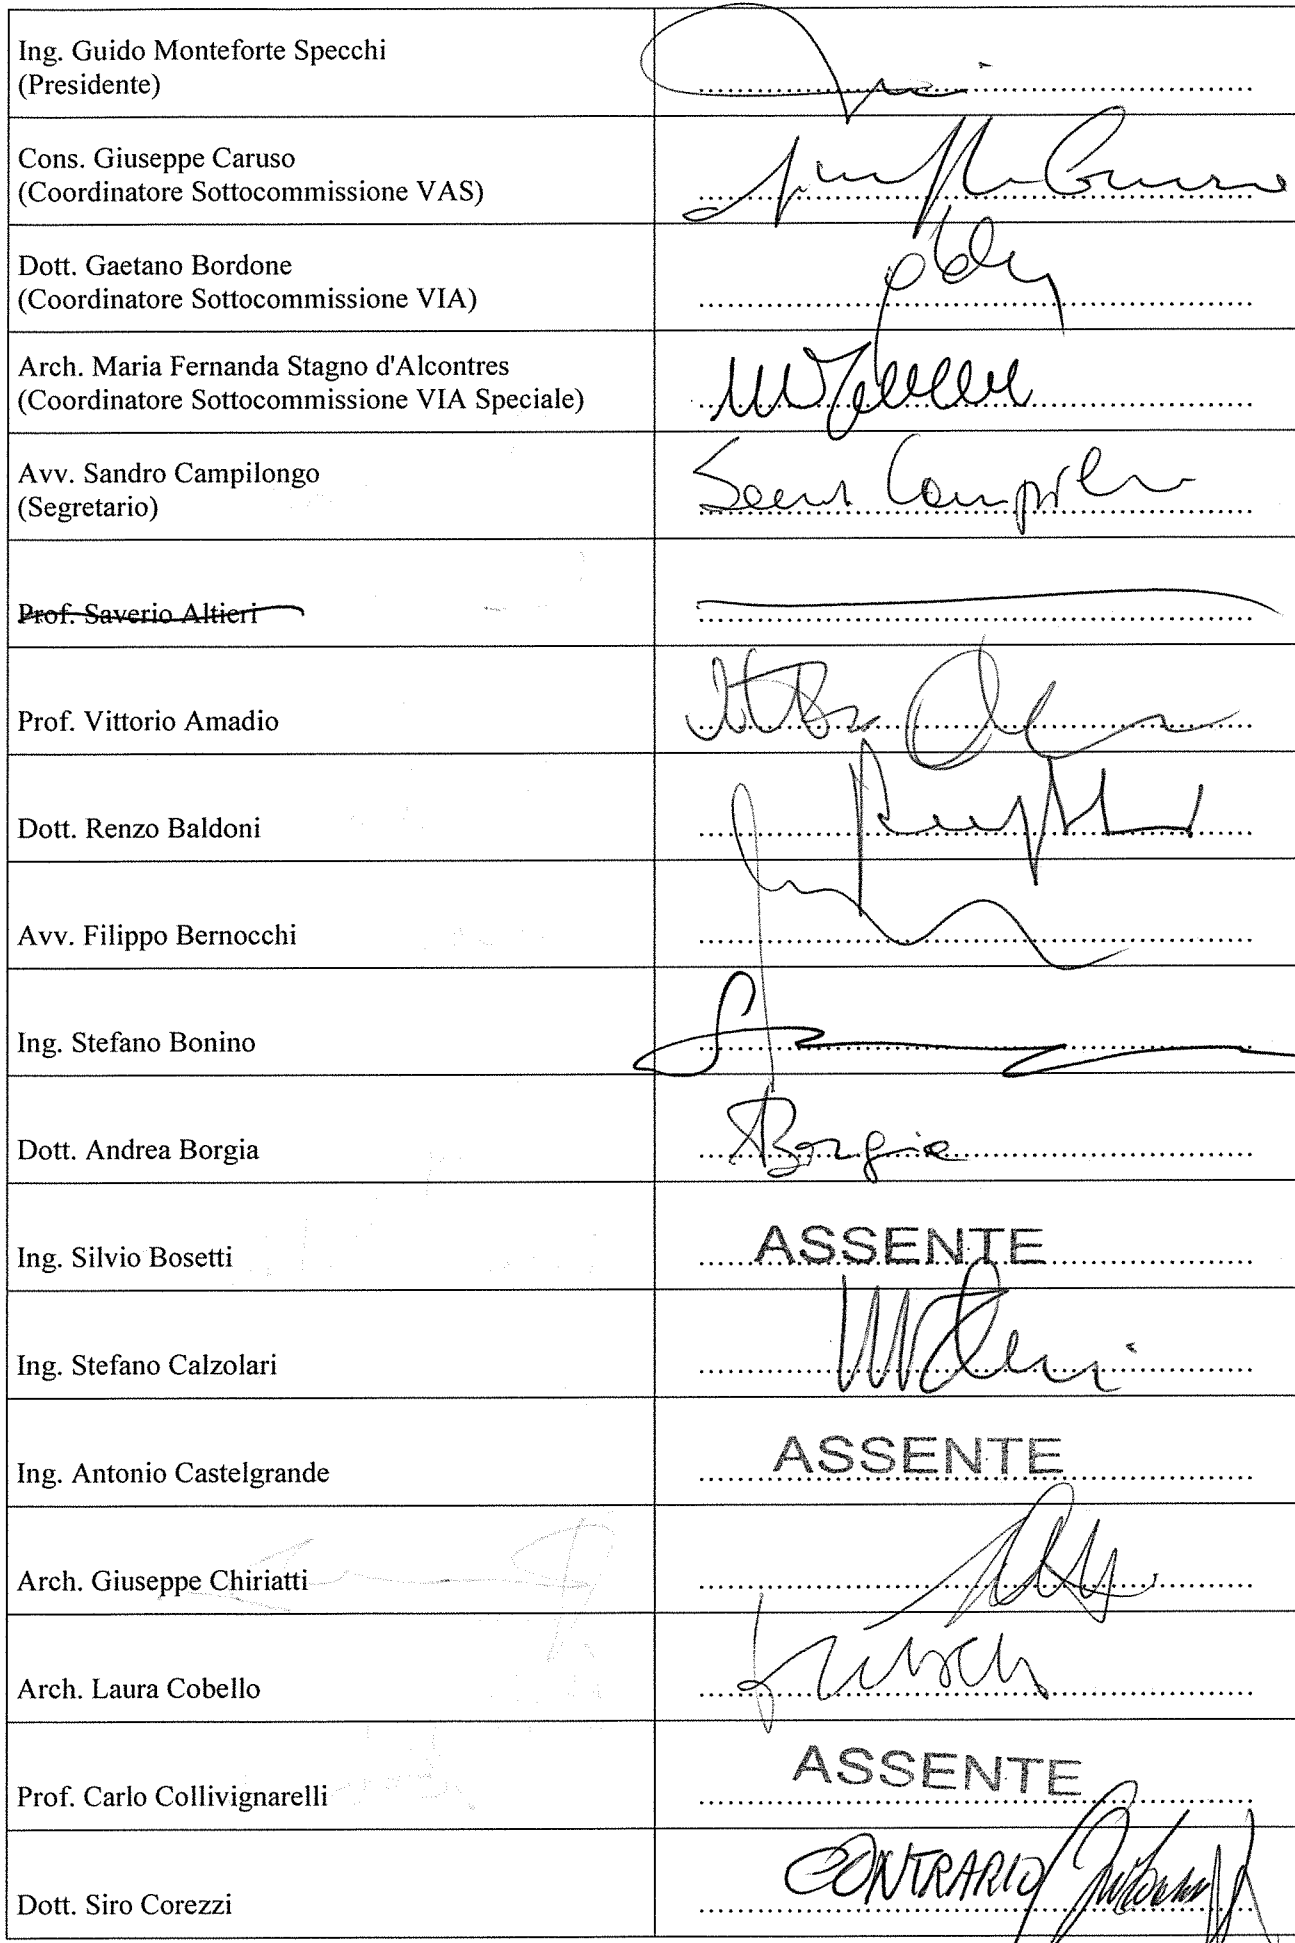 Ing. Guido Monteforte Specchi
(Presidente)
Cons. Giuseppe Caruso
(Coordinatore Sottocommissione VAS)
Dott. Gaetano Bordone
(Coordinatore Sottocommissione VIA)
Arch. Maria Fernanda Stagno d'Alcontres
(Coordinatore Sottocommissione VIA Speciale)
Avv. Sandro Campilongo
(Segretario)
Prof. Saverio Altieri
Prof. Vittorio Amadio
Dott. Renzo Baldoni
Avv. Filippo Bernocchi
Ing. Stefano Bonino
Dott. Andrea Borgia
ABorgia
Ing. Silvio Bosetti
ASSENTE
Ing. Stefano Calzolari
Ing. Antonio Castelgrande
ASSENTE
Arch. Giuseppe Chiriatti
Arch. Laura Cobello
Prof. Carlo Collivignarelli
ASSENTE
Dott. Siro Corezzi
CONTRARIO